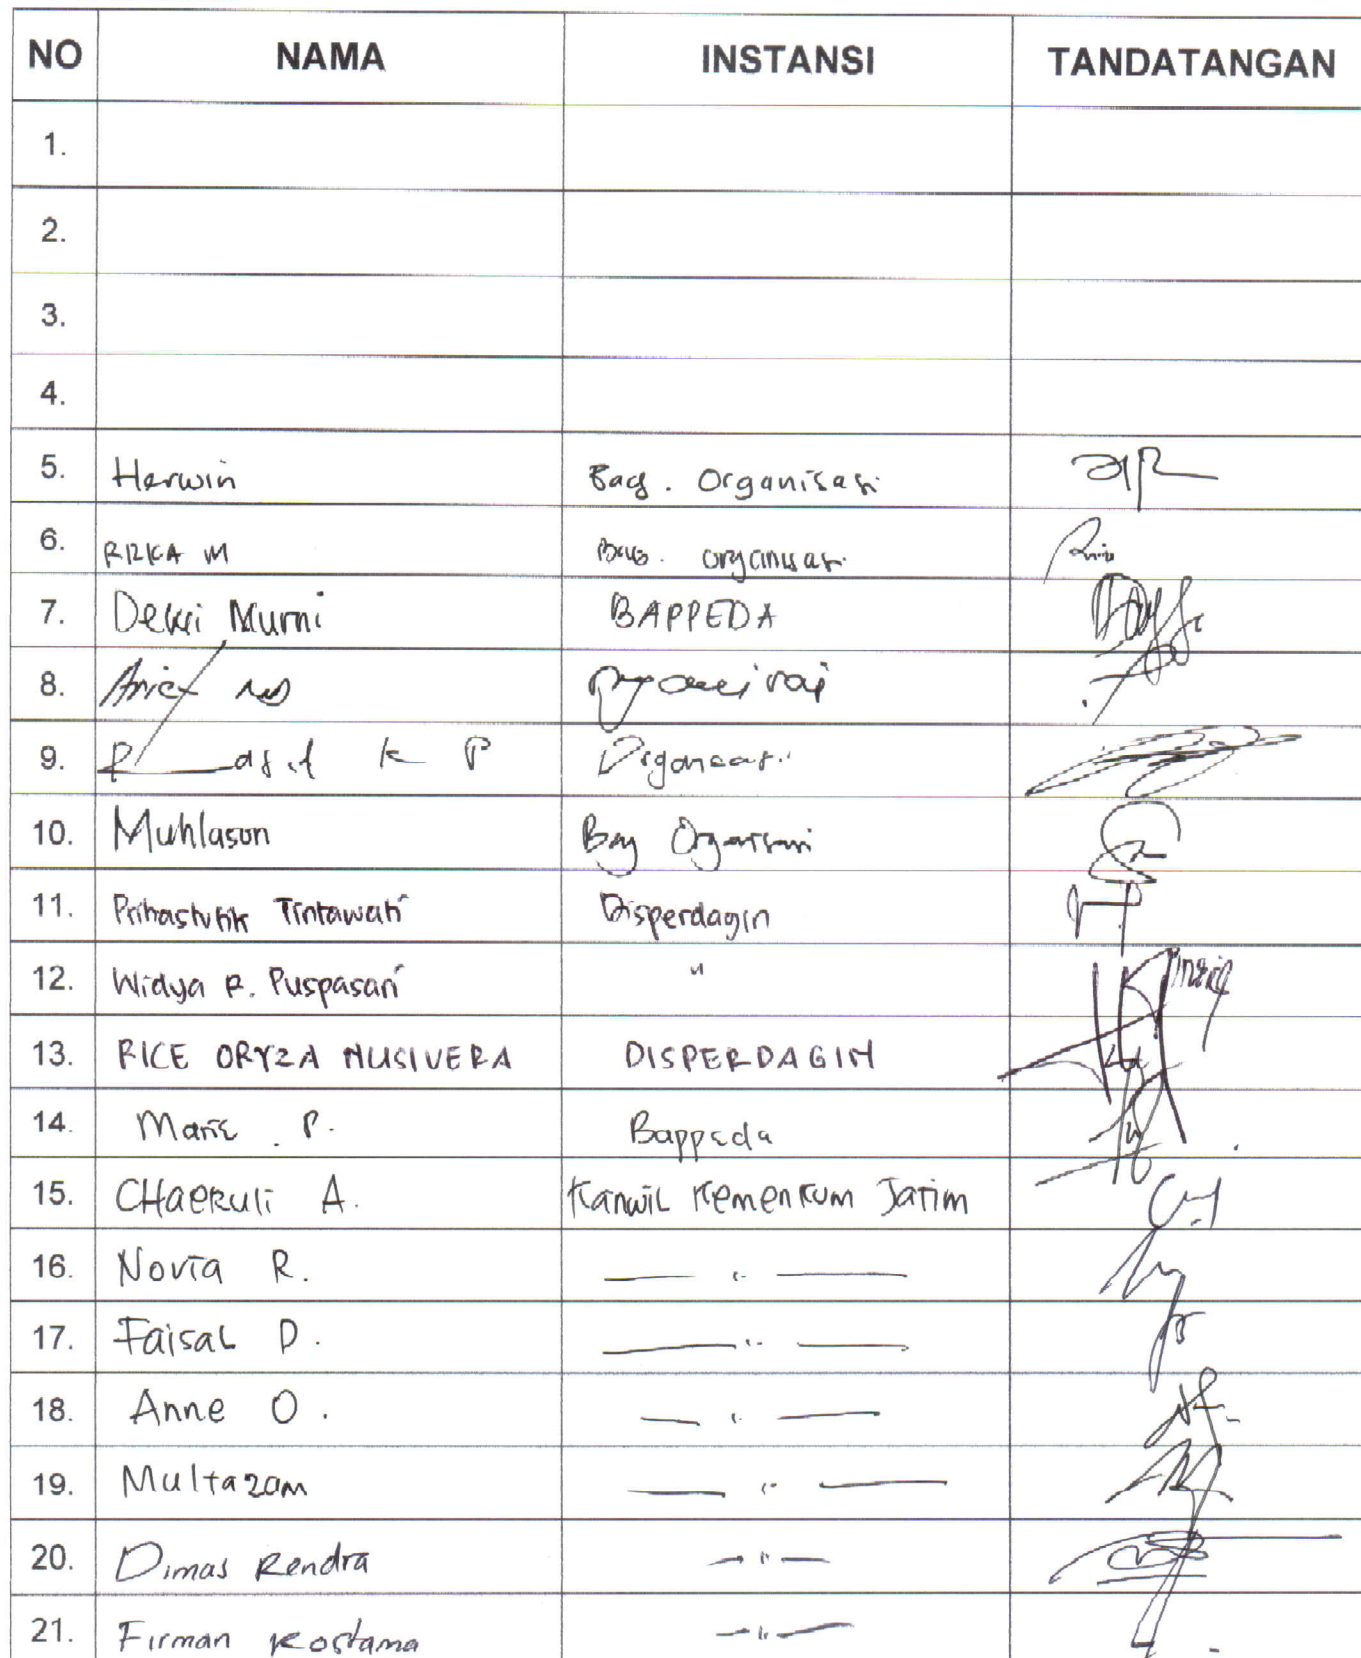 NO NAMA INSTANSI TANDATANGAN
1.
2.
3.
4.
5. Herwin Bag. Organisasi
6. RIZKA M Bag. organisasi
7. Dewi Murni BAPPEDA
8. Arief
9. K P Organisasi
10. Muhlason Bag Organisasi
11. Prihastutik Tintawati Disperdagin
12. Widya R. Puspasari "
13. RICE ORYZA NUSIVERA DISPERDAGIN
14. Marie . P. Bappeda
15. CHAERULI A. Kanwil Kemenkum Jatim
16. Novia R. — " —
17. Faisal D. — " —
18. Anne O. — " —
19. Multazam — " —
20. Dimas Rendra — " —
21. Firman Rostama — " —